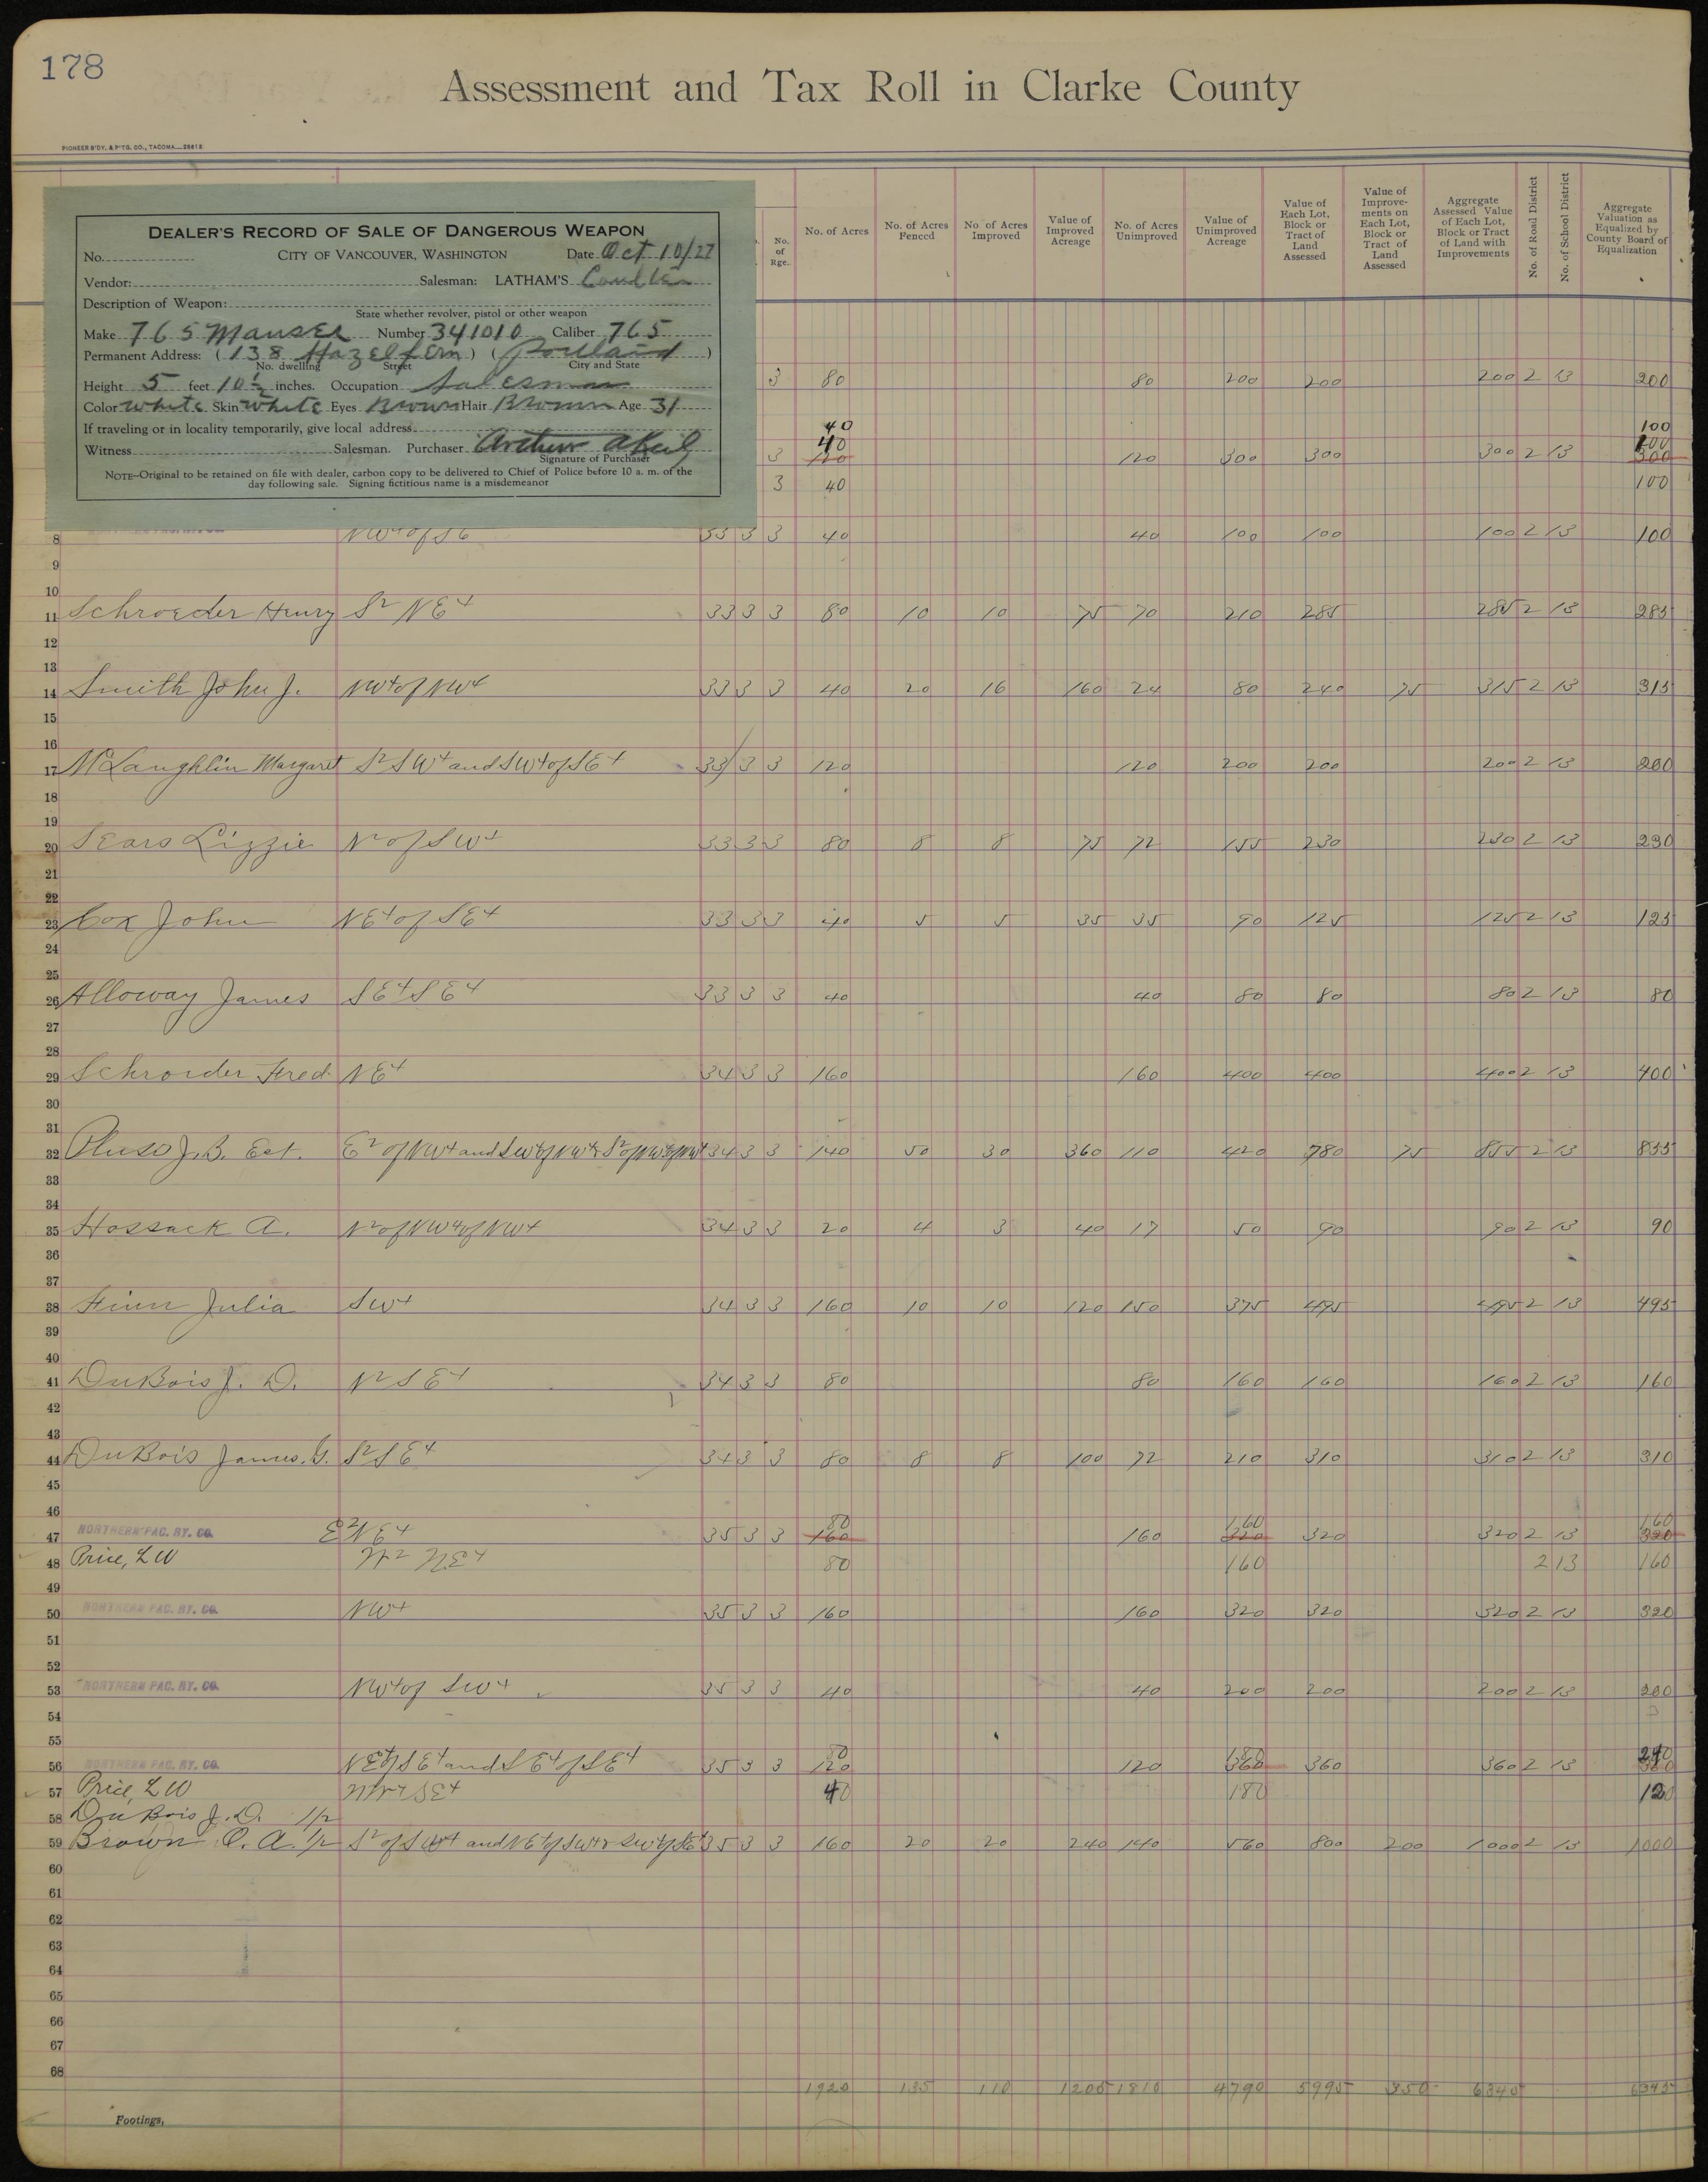 178
Assessment and Tax Roll in Clarke County
PIONEER B'DY. & P'TG. CO., TACOMA—28618
No. of Rge. No. of Acres No. of Acres Fenced No. of Acres Improved Value of Improved Acreage No. of Acres Unimproved Value of Unimproved Acreage Value of Each Lot, Block or Tract of Land Assessed Value of Improve-ments on Each Lot, Block or Tract of Land Assessed Aggregate Assessed Value of Each Lot, Block or Tract of Land with Improvements No. of Road District No. of School District Aggregate Valuation as Equalized by County Board of Equalization
DEALER'S RECORD OF SALE OF DANGEROUS WEAPON
No. CITY OF VANCOUVER, WASHINGTON Date Oct 10/27
Vendor: Salesman: LATHAM'S
Description of Weapon:
State whether revolver, pistol or other weapon
Make 765 Mauser Number 341010 Caliber 765
Permanent Address: (138 Hazelfern) (Portland)
No. dwelling Street City and State
Height 5 feet 10½ inches. Occupation Salesman
Color white Skin white Eyes Brown Hair Brown Age 31
If traveling or in locality temporarily, give local address
Witness Salesman. Purchaser
Signature of Purchaser
NOTE—Original to be retained on file with dealer, carbon copy to be delivered to Chief of Police before 10 a. m. of the
day following sale. Signing fictitious name is a misdemeanor
3 80 80 200 200 200 2 13 200
40 100
40 100
3 120 120 300 300 300 2 13 300
3 40 100
8 33 3 3 40 40 100 100 100 2 13 100
9
10
11 Schroeder Henry S2 NE4 33 3 3 80 10 10 75 70 210 285 285 2 13 285
12
13
14 Smith John J. NW4 of NW4 33 3 3 40 20 16 160 24 80 240 75 315 2 13 315
15
16
17 McLaughlin Margaret S2 SW4 and SW4 of SE4 33 3 3 120 120 200 200 200 2 13 200
18
19
20 Sears Lizzie N2 of SW4 33 3 3 80 8 8 75 72 155 230 230 2 13 230
21
22
23 Cox John NE4 of SE4 33 3 3 40 5 5 35 35 90 125 125 2 13 125
24
25
26 Alloway James SE4 SE4 33 3 3 40 40 80 80 80 2 13 80
27
28
29 Schroeder Fred NE4 34 3 3 160 160 400 400 400 2 13 400
30
31
32 J.B. Est. E2 of NW4 and SW4 of NW4 & S2 of NW4 of NW4 34 3 3 140 50 30 360 110 420 780 75 855 2 13 855
33
34
35 Hossack A. N2 of NW4 of NW4 34 3 3 20 4 3 40 17 50 90 90 2 13 90
36
37
38 Finn Julia SW4 34 3 3 160 10 10 120 150 375 495 495 2 13 495
39
40
41 DuBois J. D. N2 SE4 34 3 3 80 80 160 160 160 2 13 160
42
43
44 DuBois James. G. S2 SE4 34 3 3 80 8 8 100 72 210 310 310 2 13 310
45
46 80 160 160
47 NORTHERN PAC. RY. CO. E2 NE4 35 3 3 160 160 320 320 320 2 13 320
48 Price, L W W2 NE4 80 160 2 13 160
49
50 NORTHERN PAC. RY. CO. NW4 35 3 3 160 160 320 320 320 2 13 320
51
52
53 NORTHERN PAC. RY. CO. NW4 of SW4 35 3 3 40 40 200 200 200 2 13 200
54
55 80 180 240
56 NORTHERN PAC. RY. CO. NE4 of SE4 and SE4 of SE4 35 3 3 120 120 360 360 360 2 13 360
57 Price, L W NW4 SE4 40 180 120
58 DuBois J. D. 1/2
59 Brown O. A. 1/2 S2 of SW4 and NE4 of SW4 & SW4 of SE4 35 3 3 160 20 20 240 140 560 800 200 1000 2 13 1000
60
61
62
63
64
65
66
67
68
1920 135 110 1205 1810 4790 5995 350 6345 6345
Footings,